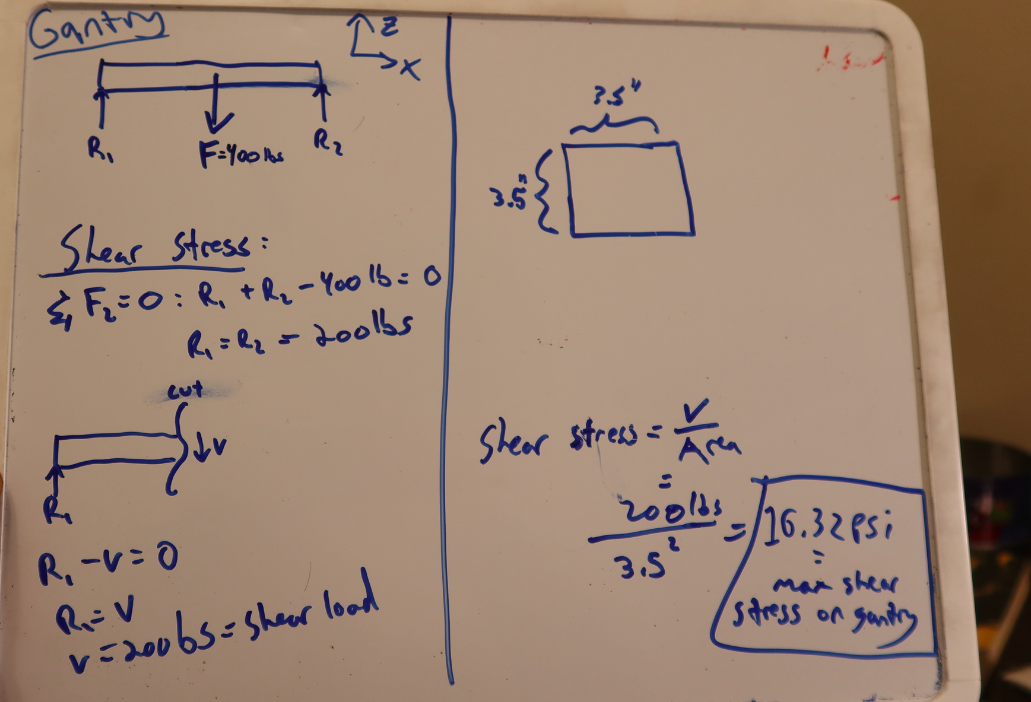 Gantry
Z
X
R₁
F=400lbs
R₂
Shear Stress:
Σ F₂=0: R₁ + R₂ - 400lb = 0
R₁ = R₂ = 200lbs
cut
↓ V
R₁
R₁ - V = 0
R₁ = V
V = 200lbs = shear load
3.5"
3.5"
Shear stress = V/Area
=
200lbs/3.5² = 16.32psi
=
max shear
stress on gantry